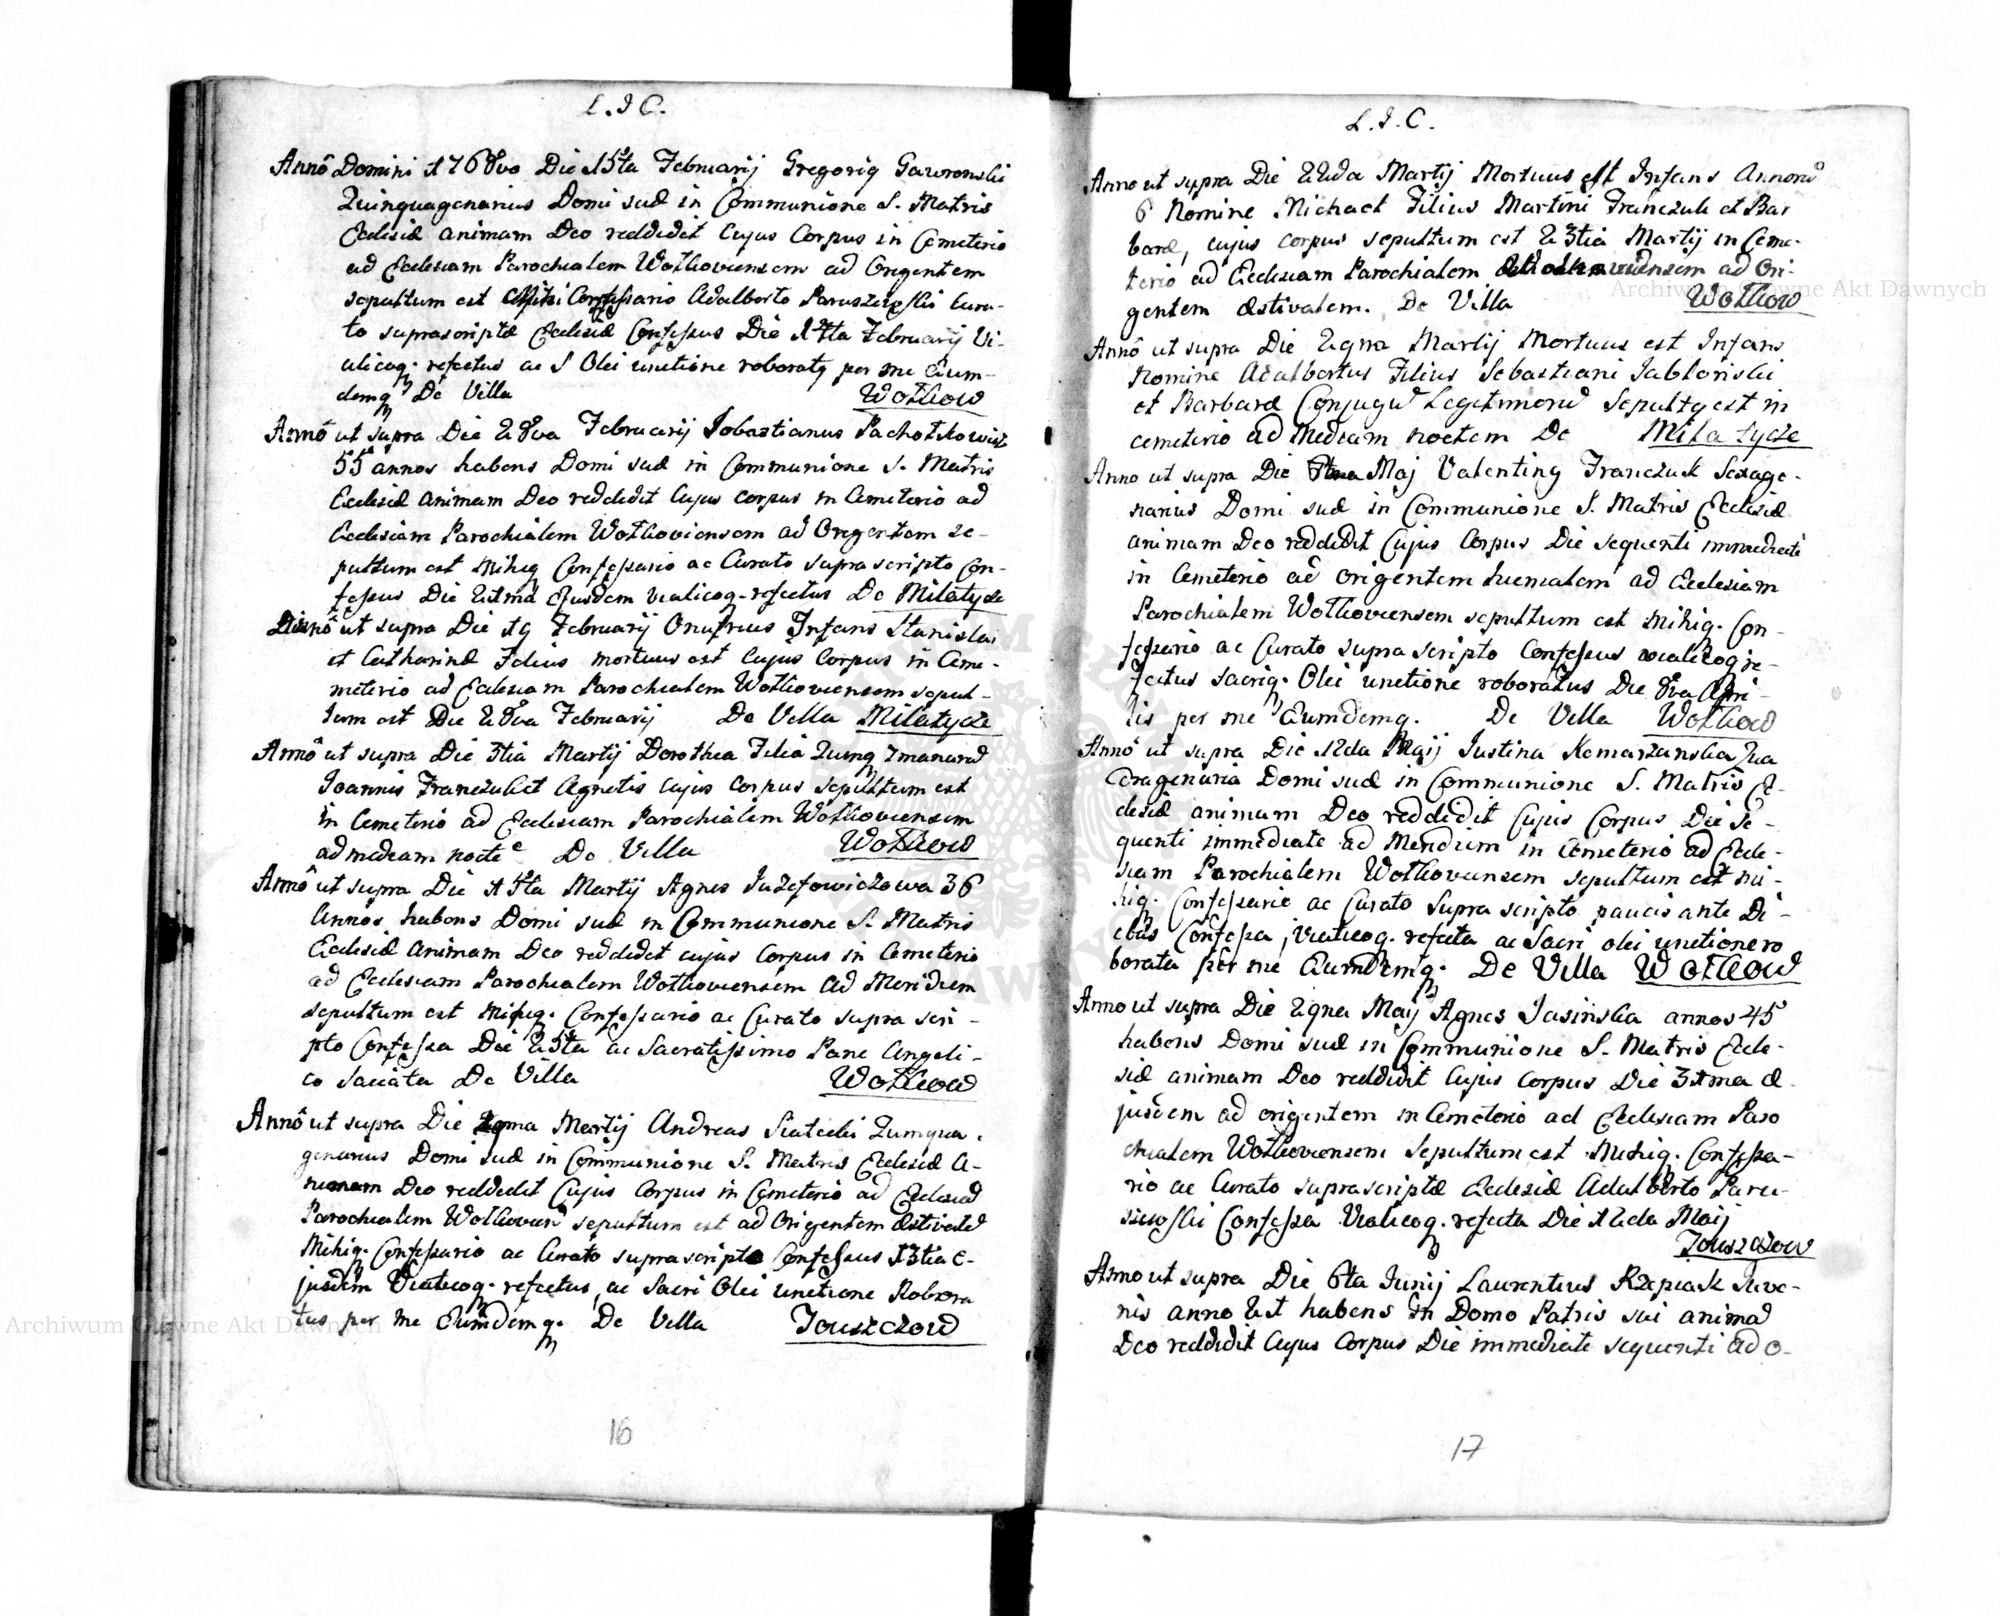 L.J C.
Annô Domini 1768vo Die 15ta Februarij Gregoriq Gawronski
Quinquagenarius Domi suæ in Communione S. Matris
Ecclesiæ animam Deo reddidit Cujus Corpus in Cemeterio
ad Ecclesiam Parochialem Wołkoviensem ad Origentem
sepultum est Confessario Adalberto Paruszewski Cura-
to suprascriptæ Ecclesiæ Confessus Die Februarij Vi-
aticoq. refectus ac S Olei unctione roboratq per me Eum-
demq De Villa Wołkow
Annô ut supra Die 28va Februarij Sebastianus
55 annos habens Domi suæ in Communione S. Matris
Ecclesiæ animam Deo reddidit Cujus corpus in Cemeterio ad
Ecclesiam Parochialem Wołkoviensem ad Origentem se-
pultum est Mihiq Confessario ac Curato supra scripto Con-
fessus Die 21ma Ejusdem viaticoq. refectus De Milatycze
Annô ut supra Die 19 Februarij Onufrius Infans Stanislai
et Catharinæ Filius mortuus est Cujus Corpus in Ceme-
meterio ad Ecclesiam Parochialem Wołkoviensem sepul-
tum est Die 28va Februarij De Villa Milatycze
Annô ut supra Die 3tia Martij Dorothea Filia
Joannis Franczuk et Agnetis cujus corpus sepultum est
in Cemeterio ad Ecclesiam Parochialem Wołkoviensem
ad mediam nocte De Villa Wołkow
Annô ut supra Die 15ta Martij Agnes Juzefowiczowa 36
Annos habens Domi suæ in Communione S. Matris
Ecclesiæ Animam Deo reddidit cujus Corpus in Cemeterio
ad Ecclesiam Parochialem Wołkoviensem ad Meridiem
sepultum est Mihiq. Confessario ac Curato supra scri-
pto Confessa Die ac Sacratissimo Pane Angeli-
co saciata De Villa Wołkow
Annô ut supra Die Martij Andreas Quinqua-
genarius Domi suæ in Communione S. Matris Ecclesiæ A-
nimam Deo reddidit Cujus Corpus in Cemeterio ad Ecclesiam
Parochialem sepultum est ad Origentem
Mihiq. Confessario ac Curato suprascripto Confessus 13tia e-
jusdem Viaticoq. refectus, ac Sacri Olei unctione Robora
tus per me Eumdemq. De Villa Touszczow
16
L.J.C.
Anno ut supra Die 22da Martij Mortuus est Infans Annorũ
6 Nomine Michael Filius Martini Franczuk et Bar
baræ, cujus corpus sepultum est 23tia Martij in Ceme-
terio ad Ecclesiam Parochialem ad Ori-
gentem æstivalem. De Villa Wołkow
Annô ut supra Die Martij Mortuus est Infans
Nomine Adalbertus Filius Sebastiani Jabłoński
et Barbaræ Conjugũ Legitimorũ Sepultq est in
cemeterio ad Mediam noctem De Milatycze
Anno ut supra Die Maj Valentinq Franczuk Sexage-
narius Domi suæ in Communione S. Matris Ecclesiæ
animam Deo reddidit Cujus Corpus Die sequenti immediatè
in Cemeterio ad origentem hiemalem ad Ecclesiam
Parochialem Wołkoviensem sepultum est Mihiq. Con-
fessario ac Curato supra scripto Confessus viaticoq re-
fectus Sacriq. Olei unctione roboratus Die 8va Apri-
lis per me Eumdemq. De Villa Wołkow
Annô ut supra Die 12da Maij Justina Komarzanska Qua
dragenaria Domi suæ in Communione S. Matris Ec-
clesiæ animam Deo reddidit Cujus Corpus Die se-
quenti immediate ad Meridiem in Cemeterio ad Eccle-
siam Parochialem Wołkoviensem sepultum est mi-
hiq. Confessario ac Curato Supra scripto paucis ante Di-
ebus Confessa, Viaticoq. refecta ac Sacri olei unctione ro
borata per me Eumdemq. De Villa Wołkow
Anno ut supra Die Maij Agnes Jasińska annos 45
habens Domi suæ in Communione S. Matris Eccle-
siæ animam Deo reddidit Cujus corpus Die 31ma e-
jusdem ad origentem in Cemeterio ad Ecclesiam Paro
chialem Wołkoviensem sepultum est Mihiq. Confessa-
rio ac Curato suprascriptæ Ecclesiæ Adalberto Paru-
szewski Confessa Viaticoq. refecta Die 12da Maij
Touszczow
Anno ut supra Die 6ta Junij Laurentius Rzepiak Juve-
nis anno 21 habens in Domo Patris sui animã
Deo reddidit Cujus Corpus Die immediate sequenti ad O-
17
Archiwum Główne Akt Dawnych
Archiwum Główne Akt Dawnych